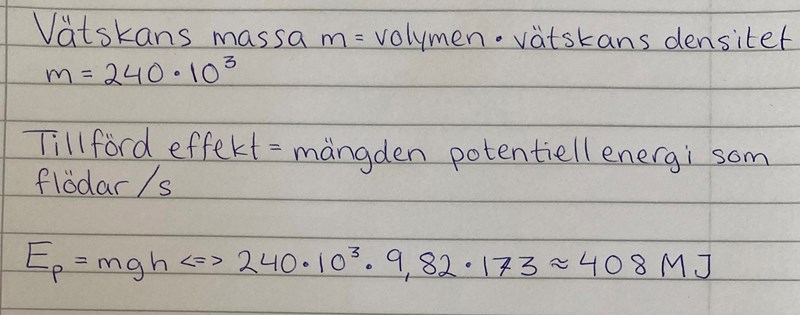 Vätskans massa m = volymen · vätskans densitet
m = 240 · 10³
Tillförd effekt = mängden potentiell energi som
flödar/s
Eₚ = mgh <=> 240 · 10³ · 9,82 · 173 ≈ 408 MJ